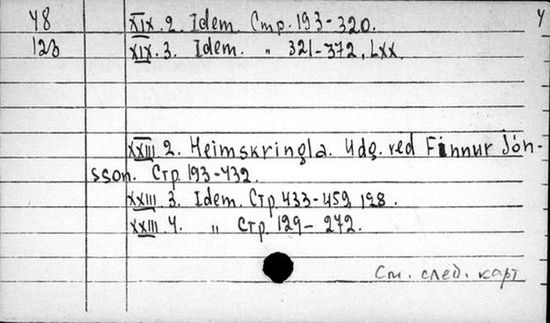 48 XIX. 2. Idem. Стр. 193-320. 4
123 XIX. 3. Idem. " 321-372, Lxx.
XXIII 2. Heimskringla. Udg. ved Finnur Jón-
sson. Стр. 193-432.
XXIII 3. Idem. Стр. 433-459, 128.
XXIII 4. " Стр. 129-272.
См. след. карт